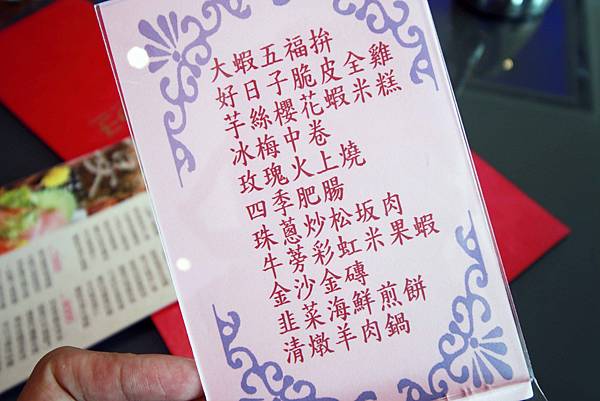 大蝦五福拚
好日子脆皮全雞
芋絲櫻花蝦米糕
冰梅中卷
玫瑰火上燒
四季肥腸
珠蔥炒松坂肉
牛蒡彩虹米果蝦
金沙金磚
韭菜海鮮煎餅
清燉羊肉鍋